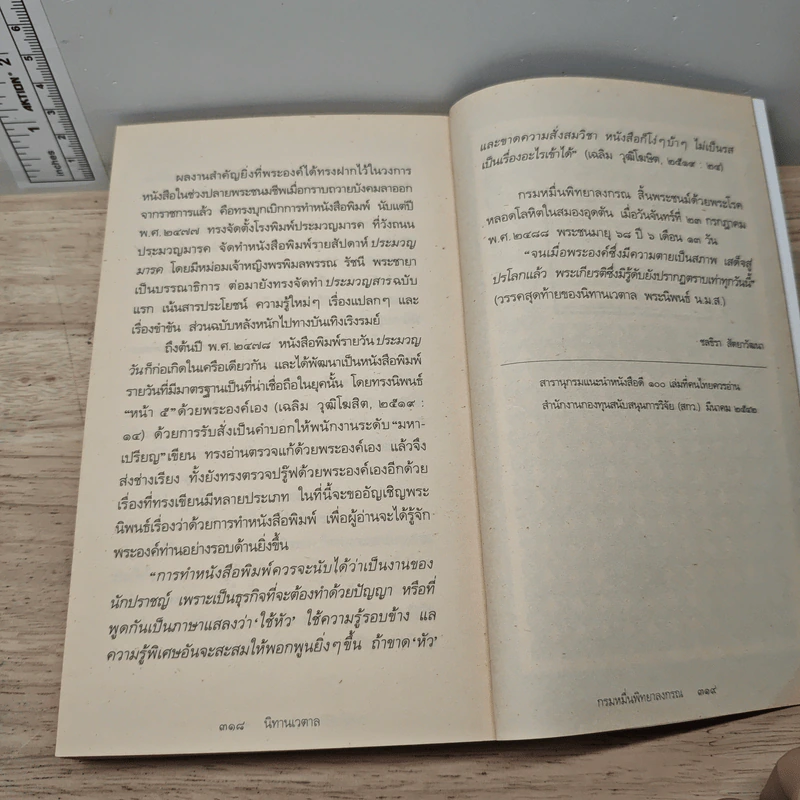 ผลงานสำคัญยิ่งที่พระองค์ได้ทรงฝากไว้ในวงการ
หนังสือในช่วงปลายพระชนมชีพเมื่อกราบถวายบังคมลาออก
จากราชการแล้ว คือทรงบุกเบิกการทำหนังสือพิมพ์ นับแต่ปี
พ.ศ.๒๔๗๗ ทรงจัดตั้งโรงพิมพ์ประมวญมารค ที่วังถนน
ประมวญมารค จัดทำหนังสือพิมพ์รายสัปดาห์ ประมวญ
มารค โดยมีหม่อมเจ้าหญิงพรพิมลพรรณ รัชนี พระชายา
เป็นบรรณาธิการ ต่อมายังทรงจัดทำ ประมวญสาร ฉบับ
แรก เน้นสารประโยชน์ ความรู้ใหม่ๆ เรื่องแปลกๆ และ
เรื่องขำขัน ส่วนฉบับหลังหนักไปทางบันเทิงเริงรมย์
ถึงต้นปี พ.ศ.๒๔๗๘ หนังสือพิมพ์รายวัน ประมวญ
วัน ก็ก่อเกิดในเครือเดียวกัน และได้พัฒนาเป็นหนังสือพิมพ์
รายวันที่มีมาตรฐานเป็นที่น่าเชื่อถือในยุคนั้น โดยทรงนิพนธ์
“หน้า ๕” ด้วยพระองค์เอง (เฉลิม วุฒิโฆสิต, ๒๕๑๙ :
๑๔) ด้วยการรับสั่งเป็นคำบอกให้พนักงานระดับ “มหา-
เปรียญ” เขียน ทรงอ่านตรวจแก้ด้วยพระองค์เอง แล้วจึง
ส่งช่างเรียง ทั้งยังทรงตรวจปรู๊ฟด้วยพระองค์เองอีกด้วย
เรื่องที่ทรงเขียนมีหลายประเภท ในที่นี้จะขออัญเชิญพระ
นิพนธ์เรื่องว่าด้วยการทำหนังสือพิมพ์ เพื่อผู้อ่านจะได้รู้จัก
พระองค์ท่านอย่างรอบด้านยิ่งขึ้น
“การทำหนังสือพิมพ์ควรจะนับได้ว่าเป็นงานของ
นักปราชญ์ เพราะเป็นธุรกิจที่จะต้องทำด้วยปัญญา หรือที่
พูดกันเป็นภาษาแสลงว่า ‘ใช้หัว’ ใช้ความรู้รอบข้าง แล
ความรู้พิเศษอันจะสะสมให้พอกพูนยิ่งๆ ขึ้น ถ้าขาด ‘หัว’
๓๑๘ นิทานเวตาล
และขาดความสั่งสมวิชา หนังสือก็โง่ๆ บ้าๆ ไม่เป็นรส
เป็นเรื่องอะไรเข้าได้” (เฉลิม วุฒิโฆษิต, ๒๕๑๙ : ๒๔)
กรมหมื่นพิทยาลงกรณ สิ้นพระชนม์ด้วยพระโรค
หลอดโลหิตในสมองอุดตัน เมื่อวันจันทร์ที่ ๒๓ กรกฎาคม
พ.ศ.๒๔๘๘ พระชนมายุ ๖๘ ปี ๖ เดือน ๑๓ วัน
“จนเมื่อพระองค์ซึ่งมีความตายเป็นสภาพ เสด็จสู่
ปรโลกแล้ว พระเกียรติซึ่งมีรู้ดับยังปรากฏตราบเท่าทุกวันนี้”
(วรรคสุดท้ายของนิทานเวตาล พระนิพนธ์ น.ม.ส.)
ชลธิรา สัตยาวัฒนา
สารานุกรมแนะนำหนังสือดี ๑๐๐ เล่มที่คนไทยควรอ่าน
สำนักงานกองทุนสนับสนุนการวิจัย (สกว.) มีนาคม ๒๕๔๒
กรมหมื่นพิทยาลงกรณ ๓๑๙
AKTION
inches
1
2